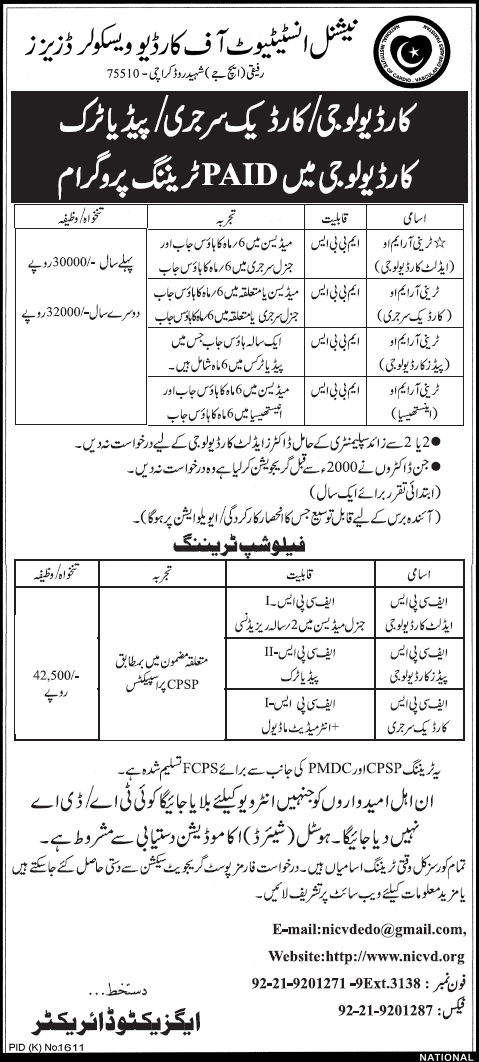 نیشنل انسٹیٹیوٹ آف کارڈیو ویسکولر ڈزیزز
رفیقی (ایچ جے) شہید روڈ کراچی - 75510
کارڈیولوجی/کارڈیک سرجری/پیڈیاٹرک
کارڈیولوجی میں PAID ٹریننگ پروگرام
اسامی قابلیت تجربہ تنخواہ/وظیفہ
☆ ٹرینی آر ایم او ایم بی بی ایس میڈیسن میں 6/ماہ کا ہاؤس جاب اور
(ایڈلٹ کارڈیولوجی) جنرل سرجری میں 6/ماہ کا ہاؤس جاب پہلے سال -/30000 روپے
ٹرینی آر ایم او ایم بی بی ایس میڈیسن یا متعلقہ میں 6/ماہ کا ہاؤس جاب
(کارڈیک سرجری) جنرل سرجری یا متعلقہ میں 6/ماہ کا ہاؤس جاب دوسرے سال -/32000 روپے
ٹرینی آر ایم او ایم بی بی ایس ایک سالہ ہاؤس جاب جس میں
(پیڈز کارڈیولوجی) پیڈیاٹرکس میں 6 ماہ شامل ہیں۔
ٹرینی آر ایم او ایم بی بی ایس میڈیسن میں 6 ماہ کا ہاؤس جاب اور
(اینستھیسیا) انیستھیسیا میں 6 ماہ کا ہاؤس جاب
● 2 یا 2 سے زائد سپلیمنٹری کے حامل ڈاکٹرز ایڈلٹ کارڈیولوجی کے لیے درخواست نہ دیں۔
● جن ڈاکٹروں نے 2000ء سے قبل گریجویشن کرلیا ہے وہ درخواست نہ دیں۔
(ابتدائی تقرر برائے ایک سال)
(آئندہ برس کے لیے قابل توسیع جس کا انحصار کارکردگی/ایویلوایشن پر ہوگا)۔
فیلوشپ ٹریننگ
اسامی قابلیت تجربہ تنخواہ/وظیفہ
ایف سی پی ایس ایف سی پی ایس۔I
ایڈلٹ کارڈیولوجی جنرل میڈیسن میں 2/سالہ ریزیڈنسی
ایف سی پی ایس ایف سی پی ایس-II متعلقہ مضمون میں بمطابق 42,500/-
پیڈز کارڈیولوجی پیڈیاٹرک CPSP پراسپیکٹس روپے
ایف سی پی ایس ایف سی پی ایس-I
کارڈیک سرجری +انٹرمیڈیٹ ماڈیول
یہ ٹریننگ CPSP اور PMDC کی جانب سے برائے FCPS تسلیم شدہ ہے۔
ان اہل امیدواروں کو جنہیں انٹرویو کیلئے بلایا جائیگا کوئی ٹی اے/ڈی اے
نہیں دیا جائیگا۔ ہوسٹل (شیئرڈ) اکاموڈیشن دستیابی سے مشروط ہے۔
تمام کورسز کل وقتی ٹریننگ اسامیاں ہیں۔ درخواست فارمز پوسٹ گریجویٹ سیکشن سے دستی حاصل کئے جاسکتے ہیں
یا مزید معلومات کیلئے ویب سائٹ پر تشریف لائیں۔
E-mail:nicvdedo@gmail.com,
Website:http://www.nicvd.org
فون نمبر : 92-21-9201271-9Ext.3138
فیکس : 92-21-9201287
دستخط...
ایگزیکٹو ڈائریکٹر
PID (K) No.1611
NATIONAL